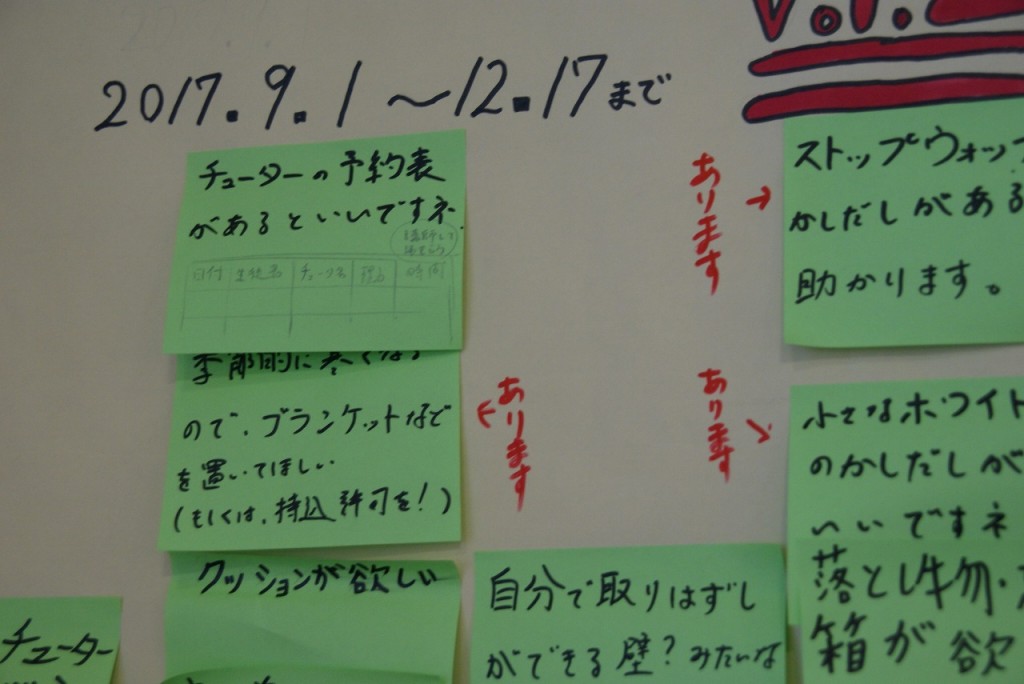 2017.9.1〜12.17まで
チューターの予約表
があるといいですネ
日付 生徒名 チュータ名 時間
季節的に寒くなる
ので、ブランケットなど
を置いてほしい
(もしくは、持込許可を!)
あります
クッションが欲しい
チューター
自分で取りはずし
ができる壁?みたいな
あります
ストップウォッ
かしだしがある
助かります。
あります
小さなホワイト
のかしだしが
いいですネ
落とし物・
箱が欲